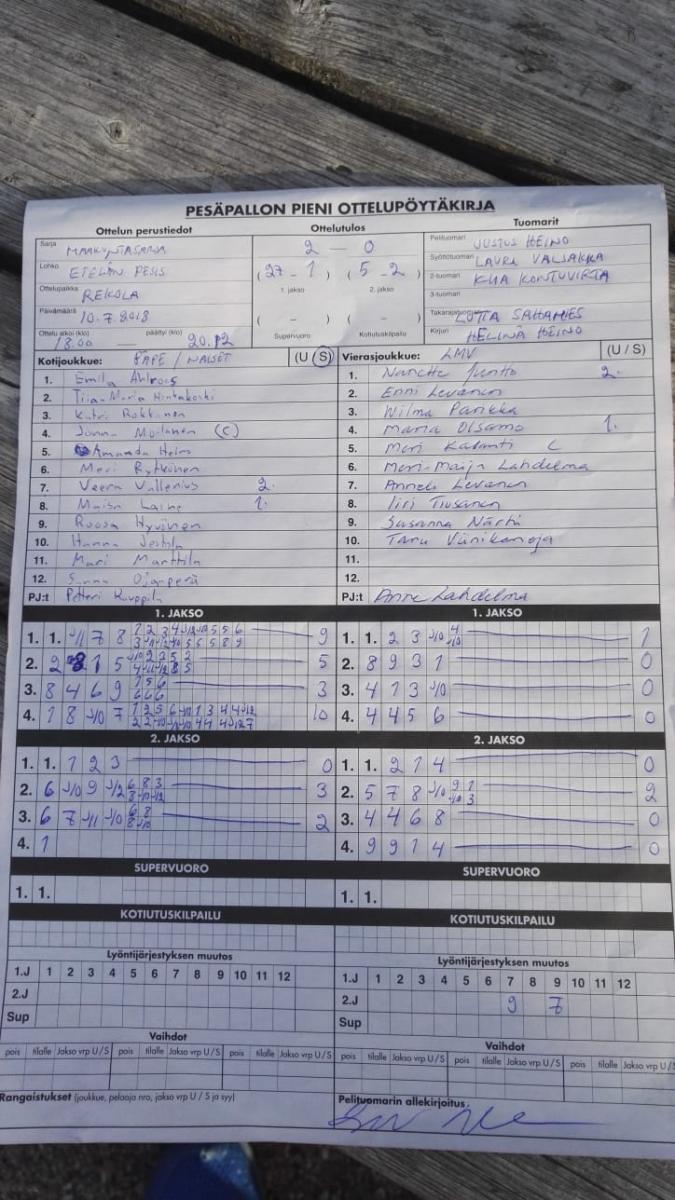 PESÄPALLON PIENI OTTELUPÖYTÄKIRJA
Ottelun perustiedot Ottelutulos Tuomarit
Sarja MAAKUNTASARJA
Lohko ETELÄN PESIS
Ottelupaikka REKOLA
Päivämäärä 10.7.2018
Ottelu alkoi (klo) 18.00 — päättyi (klo) 20.12
2 — 0
(27 - 1) (5 - 2)
1. jakso 2. jakso
( - ) ( - )
Supervuoro Kotiutuskilpailu
Pelituomari JUSTUS HEINO
Syöttötuomari LAURA VALJAKKA
2-tuomari KONTUVIRTA
3-tuomari
Takarajatuomari LOTTA
Kirjuri HELINÄ HEINO
Kotijoukkue: / NAISET (U / S)
1. Emilia Ahlroos
2. Tiia-Maria Hintakoski
3. Katri Rokkanen
4. Jonna Moilanen (C)
5. Amanda Heim
6. Meri Rytkönen
7. Veera Vallenius 2.
8. Maisa Laine 1.
9. Roosa Hyvönen
10. Hanna
11. Mari Marttila
12. Sanna Ojanperä
PJ:t Petteri Kauppila
Vierasjoukkue: LMV (U / S)
1. Nanette Juntto 2.
2. Enni Levanen
3. Wilma Parikka
4. Maria Olsamo 1.
5. Meri Kalanti C
6. Meri-Maija Lahdelma
7. Anneli Levanen
8. Iiri Tiusanen
9. Susanna Närhi
10. Taru Vänikanoja
11.
12.
PJ:t Anne Lahdelma
1. JAKSO
1. 1. 7 8 9
2. 1 5 5
3. 8 4 6 9 3
4. 1 8 7 10
1. JAKSO
1. 1. 2 3 1
2. 8 9 3 1 0
3. 4 1 3 0
4. 4 4 5 6 0
2. JAKSO
1. 1. 1 2 3 0
2. 6 9 3
3. 6 7 2
4. 1
2. JAKSO
1. 1. 2 1 4 0
2. 5 7 8 2
3. 4 4 6 8 0
4. 9 9 1 4 0
SUPERVUORO
1. 1.
SUPERVUORO
1. 1.
KOTIUTUSKILPAILU
KOTIUTUSKILPAILU
Lyöntijärjestyksen muutos
1.J 1 2 3 4 5 6 7 8 9 10 11 12
2.J
Sup
Lyöntijärjestyksen muutos
1.J 1 2 3 4 5 6 7 8 9 10 11 12
2.J 9 7
Sup
Vaihdot
pois tilalle Jakso vrp U/S pois tilalle Jakso vrp U/S pois tilalle Jakso vrp U/S
Vaihdot
pois tilalle Jakso vrp U/S pois tilalle Jakso vrp U/S pois tilalle Jakso vrp U/S
Rangaistukset (joukkue, pelaaja nro, jakso vrp U / S ja syy)
Pelituomarin allekirjoitus